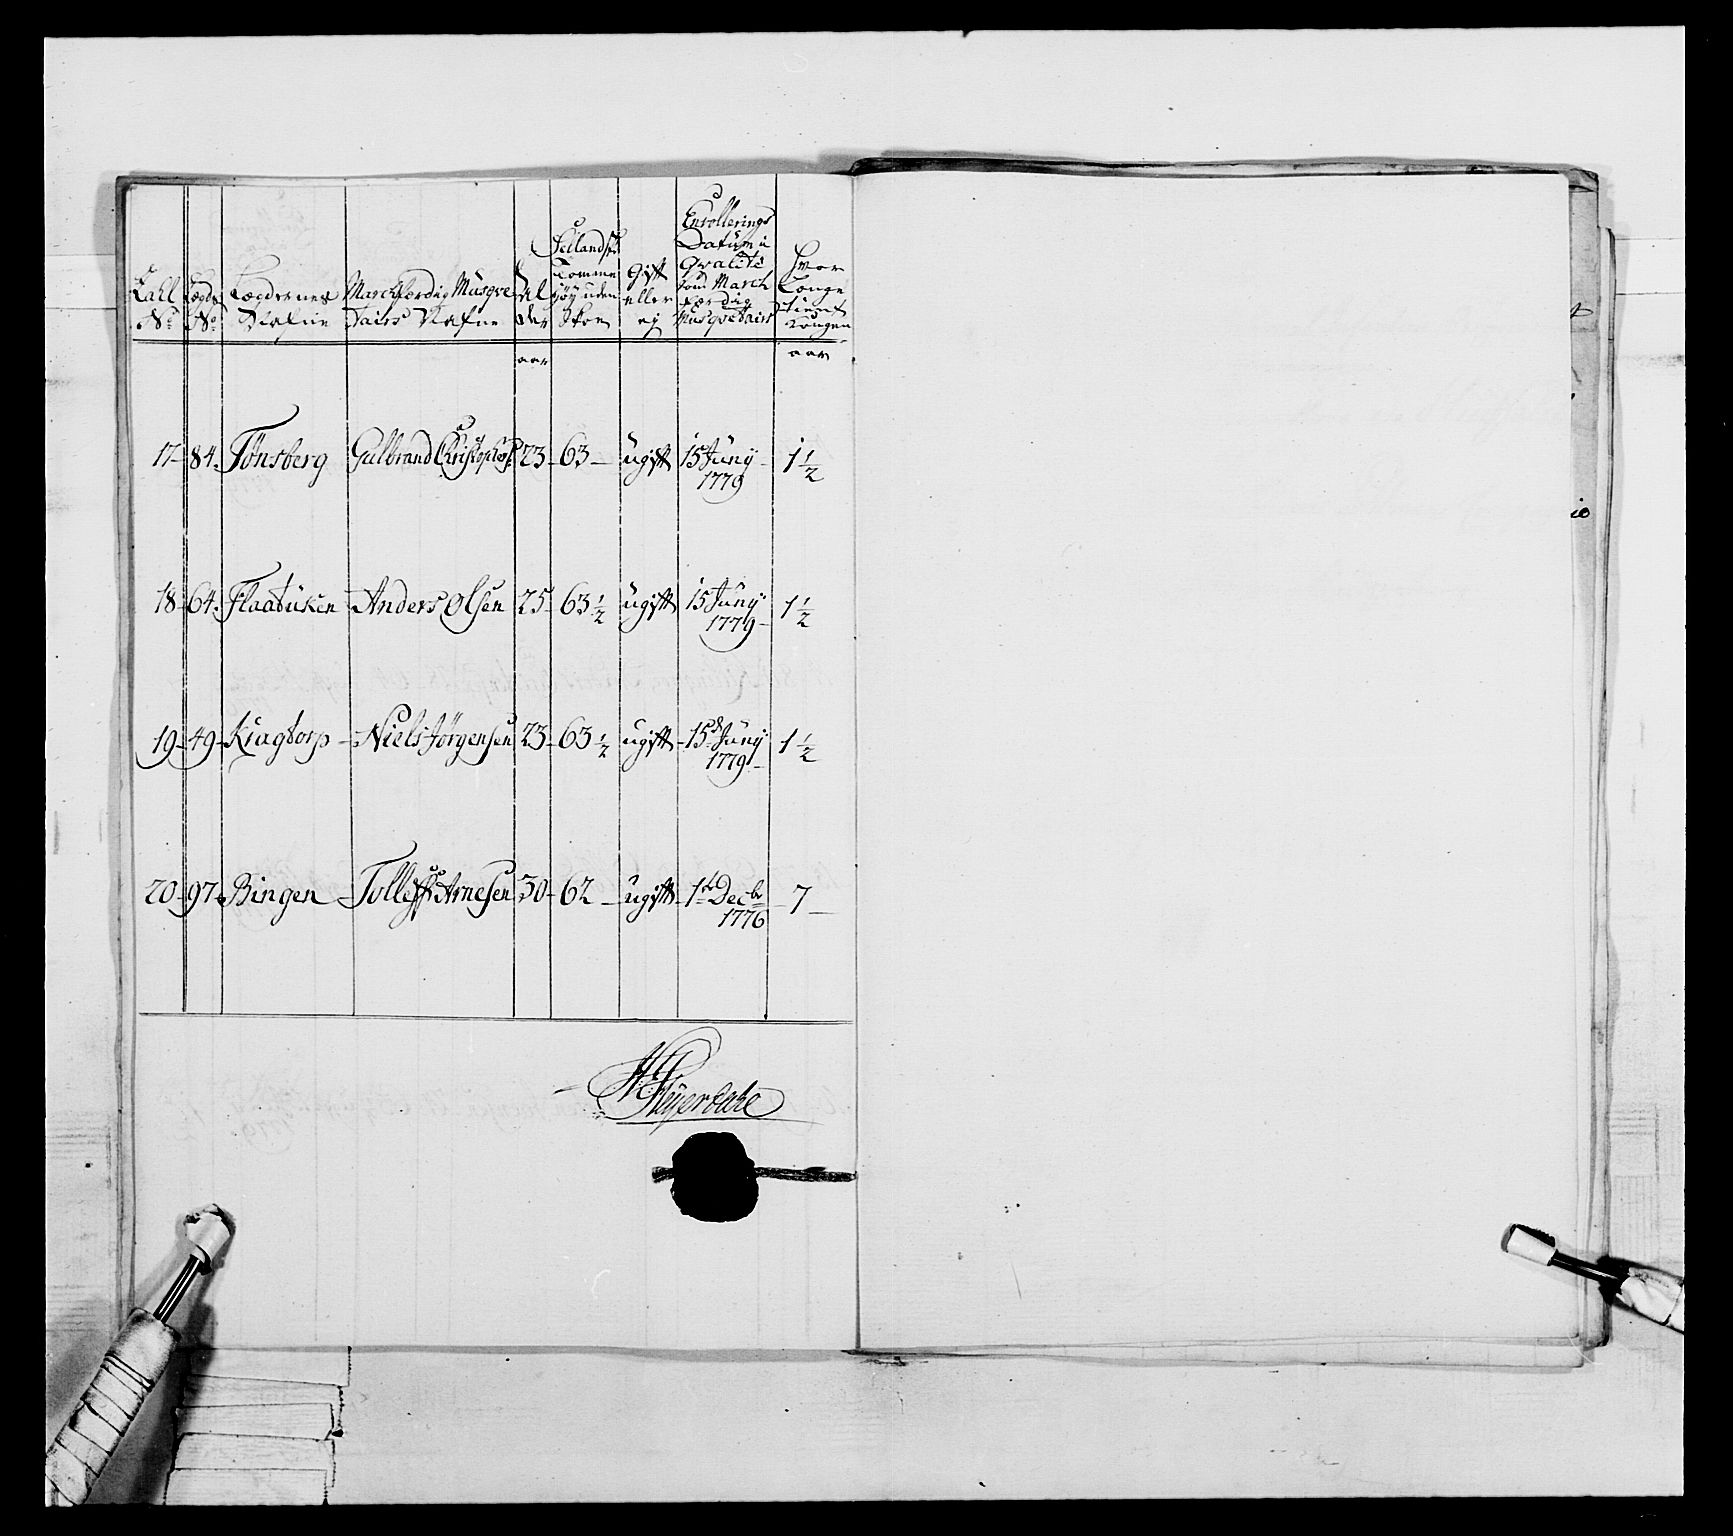 Tall No
Lægds No
Lægdernes Nafne
Marchfærdig Musqve
tairs Nafne
Al
der
Sellandske
Tomme
høy uden
Skoe
Gift
eller
ej
Enrollerings
Datum i
Qvalité
som March
færdig
Musqvetairs
Hvor
Længe
tient
Kongen
aar
aar
17- 84. Tønsberg Gulbrand Christophers: 23- 63- ugift 15 Juny 1779 1 1/2
18- 64. Flaatüken Anders Olsen 25- 63 1/2 ugift 15 Juny 1779- 1 1/2
19- 49- Kragtorp - Niels Jørgensen 23- 63 1/2 ugift- 15d Juny 1779- 1 1/2
20- 97. Bingen - Tolleff Arnesen 30- 62- ugift- 1te Decbr 1776 7-
Heyerdahl